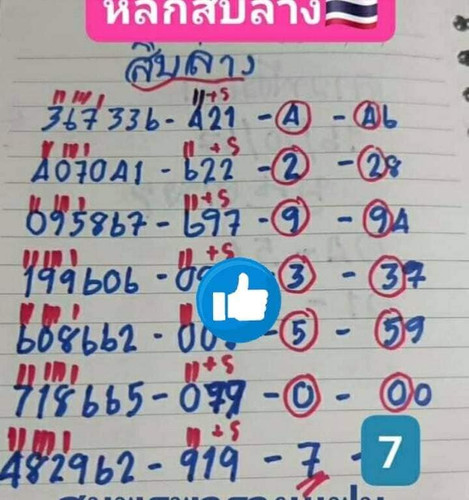 หลักสิบล่าง
สิบล่าง
+5
367336 - 421 - 4 - 46
+5
407041 - 622 - 2 - 28
+5
095867 - 697 - 9 - 94
+5
199606 - 3 - 37
608662 - 5 - 59
+5
718665 - 0 - 00
+5
482962 - 919 - 7 - 7